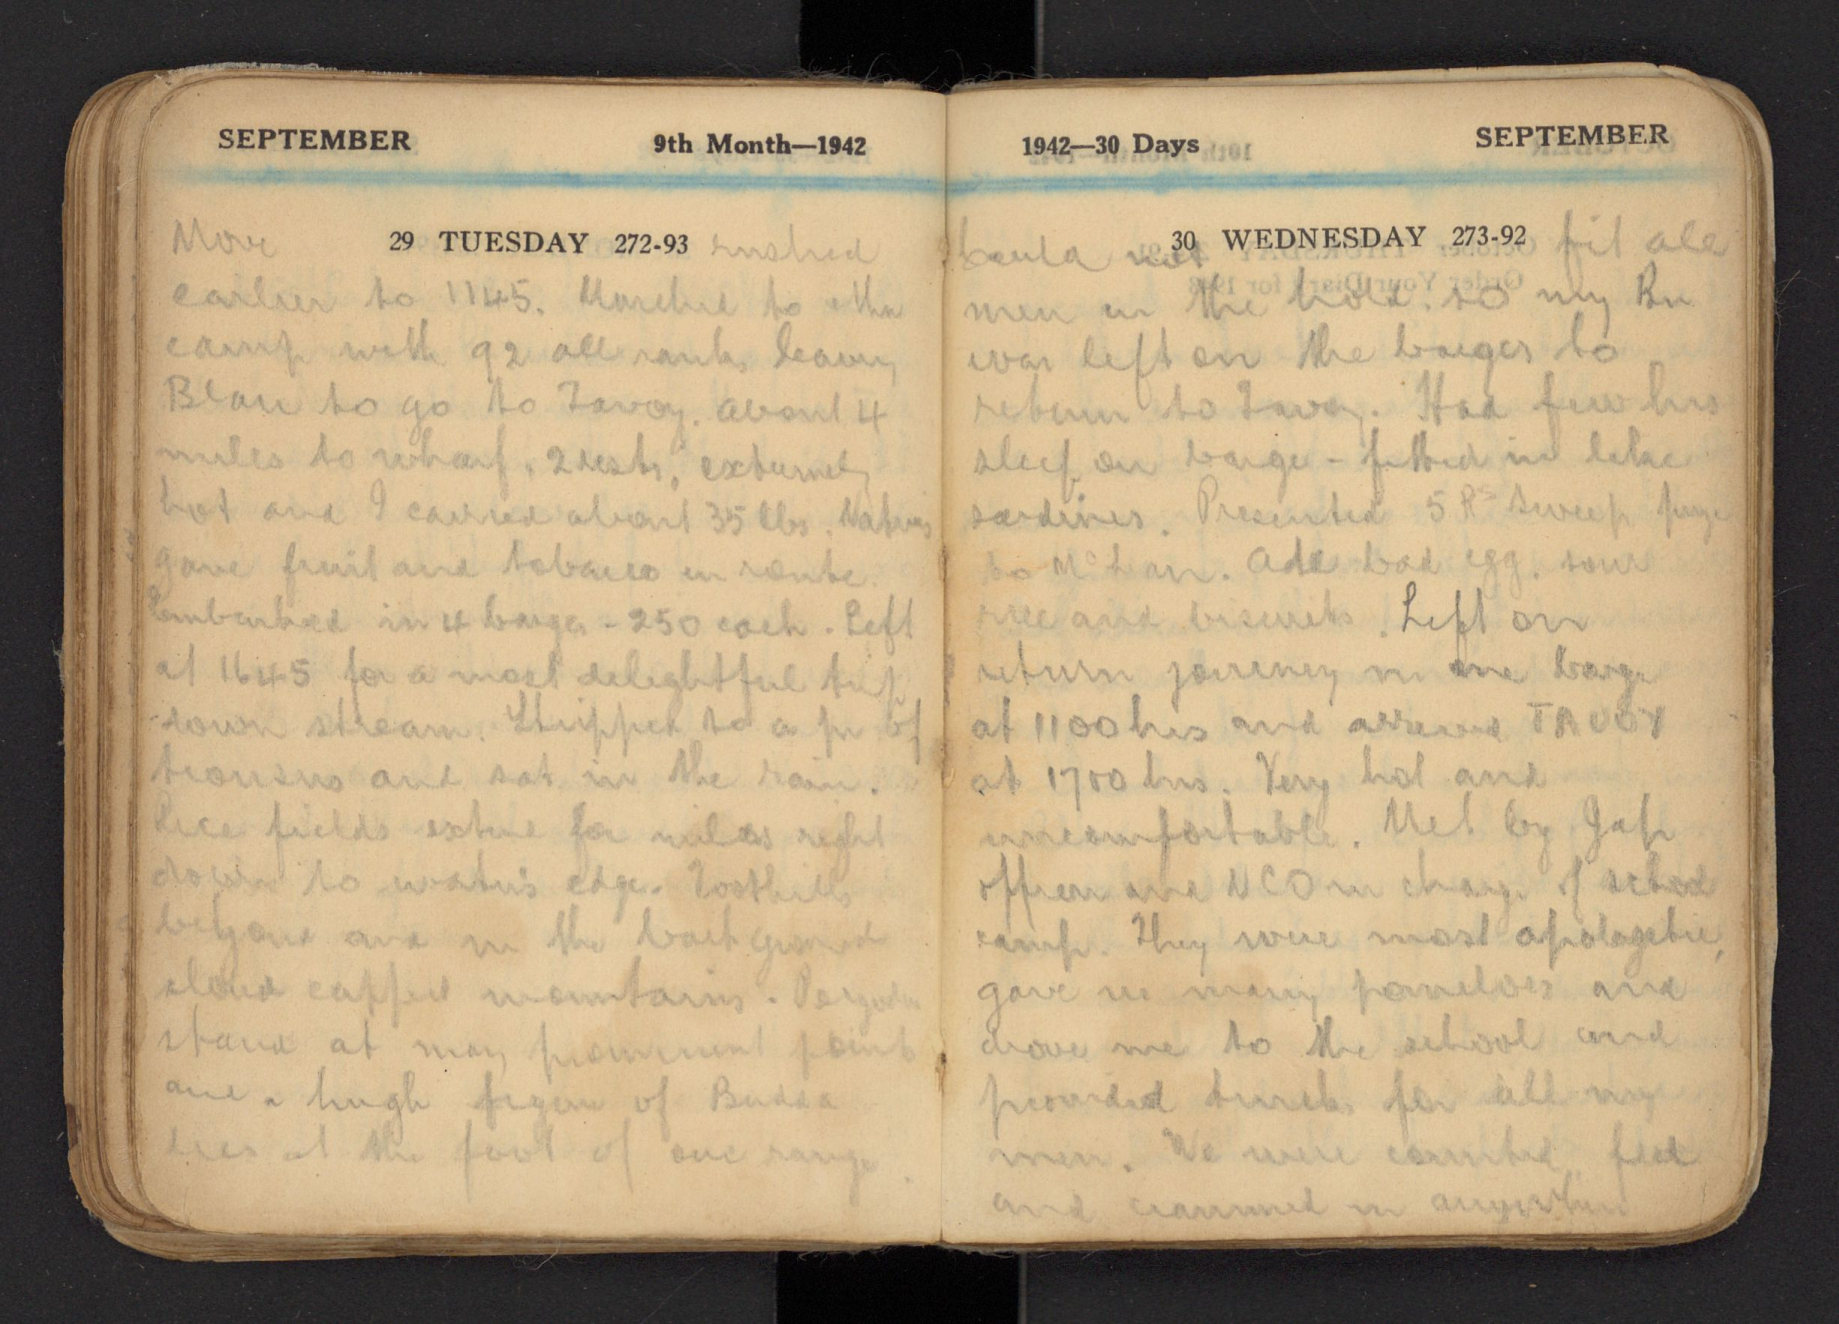 SEPTEMBER 9th Month—1942
29 TUESDAY 272-93
Move rushed
earlier to 1145. Marched to other
camp with 92 all ranks leaving
Blair to go to Tavoy. About 4
miles to wharf, 2 rests, extremely
hot and I carried about 35 lbs. Natives
gave fruit and tobacco en route.
Embarked in 4 barges - 250 each. Left
at 1645 for a most delightful trip
down stream. Stripped to a pr of
trousers and sat in the rain.
Rice fields extend for miles right
down to water's edge. Foothills
beyond and in the background
cloud capped mountains. Pagodas
stand at many prominent points
and a hugh figure of Budda
lies at the foot of one range.
1942—30 Days SEPTEMBER
30 WEDNESDAY 273-92
Could not fit all
men in the hold so my Bn
was left on the barges to
return to Tavoy. Had few hrs
sleep on barge - fitted in like
sardines. Presented 5 Rs sweep prize
to Ate bad egg, sour
rice and biscuits. Left on
return journey in one barge
at 1100 hrs and arrived TAVOY
at 1700 hrs. Very hot and
uncomfortable. Met by Jap
officer and NCO in charge of school
camp. They were most apologetic,
gave us many pomeloes and
drove me to the school and
provided trucks for all my
men. We were counted, fed
and crammed in anywhere